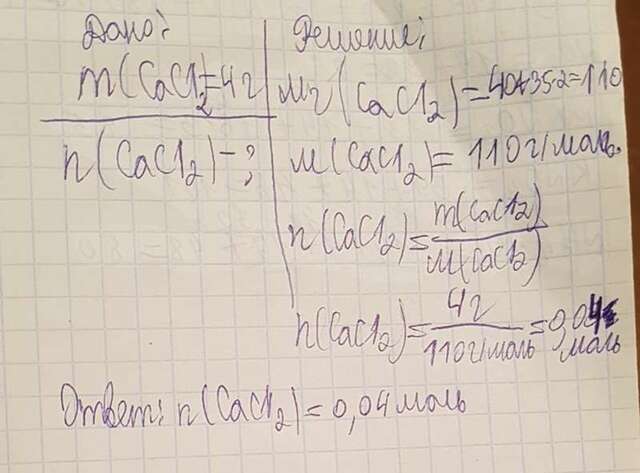 Дано:
m(CaCl2)=4г
n(CaCl2)-?
Решение:
Mr(CaCl2)=40+35·2=110
M(CaCl2)=110г/моль.
n(CaCl2)=m(CaCl2)/M(CaCl2)
n(CaCl2)=4г/110г/моль=0,04 моль
Ответ: n(CaCl2)=0,04моль